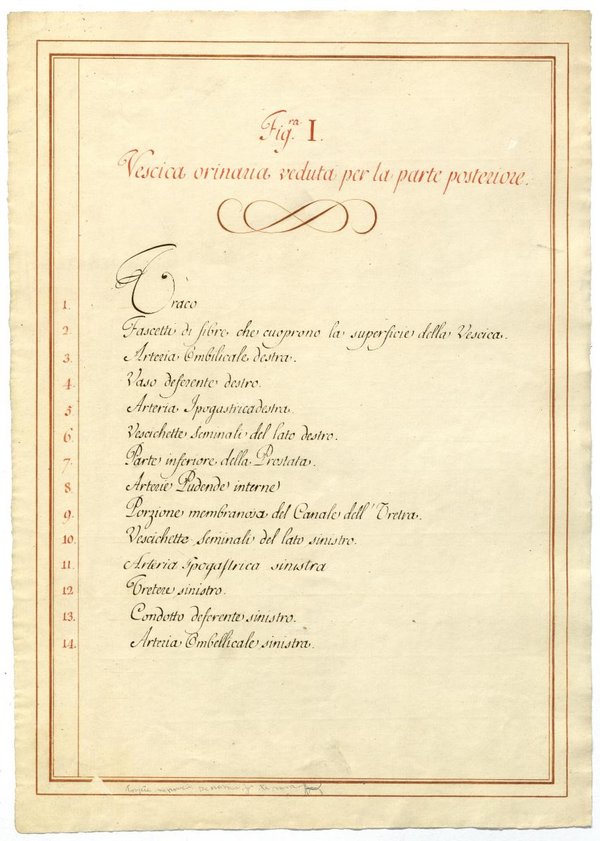 Fig.ra I.
Vescica orinaria veduta per la parte posteriore.
1. Uraco
2. Fascetti di fibre che cuoprono la superficie della Vescica.
3. Arteria Umbilicale destra.
4. Vaso deferente destro.
5. Arteria Ipogastrica destra.
6. Vescichette seminali del lato destro.
7. Parte inferiore della Prostata.
8. Arterie Pudende interne
9. Porzione membranosa del Canale dell'Uretra.
10. Vescichette seminali del lato sinistro.
11. Arteria Ipogastrica sinistra
12. Uretere sinistro.
13. Condotto deferente sinistro.
14. Arteria Umbellicale sinistra.